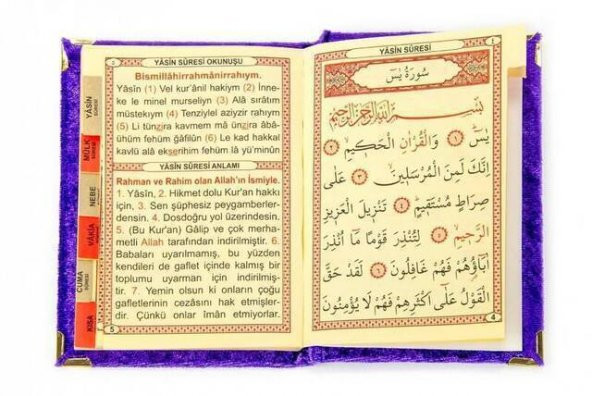 YÂSÎN SÛRESİ OKUNUŞU
Bismillâhirrahmânirrahıym.
Yâsîn (1) Vel kur'ânil hakiym (2) İnne-
ke le minel murseliyn (3) Alâ sırâtım
müstekıym (4) Tenziylel aziyzir rahıym
(5) Li tünzira kavmem mâ ünzira âbâ-
ühüm fehüm ğâfilûn (6) Le kad hakkal
kavlü alâ ekserihim fehüm lâ yü'minûn
YÂSÎN SÛRESİ ANLAMI
Rahman ve Rahim olan Allah'ın İsmiyle.
1. Yâsîn, 2. Hikmet dolu Kur'an hakkı
için, 3. Sen şüphesiz peygamberler-
densin. 4. Dosdoğru yol üzerindesin.
5. (Bu Kur'an) Gâlip ve çok merha-
metli Allah tarafından indirilmiştir. 6.
Babaları uyarılmamış, bu yüzden
kendileri de gaflet içinde kalmış bir
toplumu uyarman için indirilmiş-
tir. 7. Yemin olsun ki onların çoğu
gafletlerinin cezasını hak etmişler-
dir. Çünkü onlar îman etmiyorlar.
5
YASİN
SÛRESİ
MÜLK
SÛRESİ
NEBE
VAKIA
CUMA
SÛRESİ
KISA
YÂSÎN SÛRESİ
سُورَةُ يٰسٓ
بِسْمِ اللّٰهِ الرَّحْمٰنِ الرَّحِيمِ
يٰسٓ ﴿١﴾ وَالْقُرْاٰنِ الْحَكِيمِ ﴿٢﴾
اِنَّكَ لَمِنَ الْمُرْسَلِينَ ﴿٣﴾ عَلٰى
صِرَاطٍ مُسْتَقِيمٍ ﴿٤﴾ تَنْزِيلَ الْعَزِيزِ
الرَّحِيمِ ﴿٥﴾ لِتُنْذِرَ قَوْمًا مَٓا اُنْذِرَ
اٰبَٓاؤُهُمْ فَهُمْ غَافِلُونَ ﴿٦﴾ لَقَدْ حَقَّ
الْقَوْلُ عَلٰٓى اَكْثَرِهِمْ فَهُمْ لَا يُؤْمِنُونَ
4